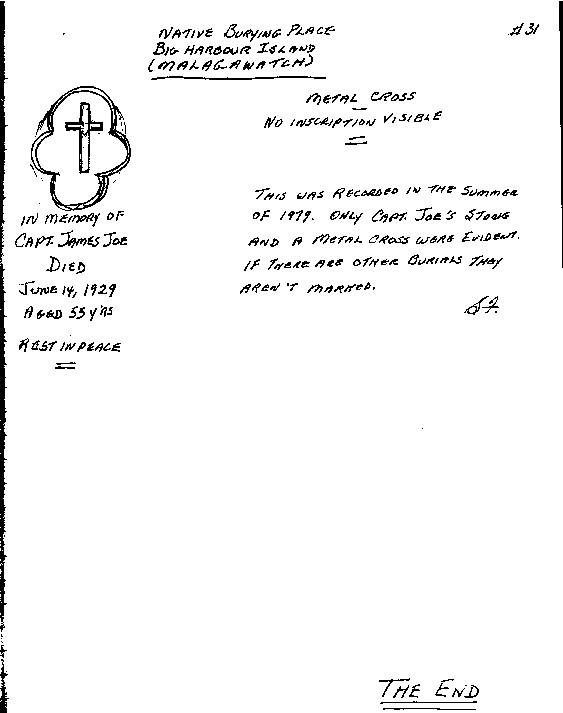 NATIVE BURYING PLACE
BIG HARBOUR ISLAND
(MALAGAWATCH)
#31
IN MEMORY OF
CAPT. JAMES JOE
DIED
JUNE 14, 1929
AGED 55 YRS
REST IN PEACE
METAL CROSS
NO INSCRIPTION VISIBLE
THIS WAS RECORDED IN THE SUMMER
OF 1979. ONLY CAPT. JOE'S STONE
AND A METAL CROSS WERE EVIDENT.
IF THERE ARE OTHER BURIALS THEY
AREN'T MARKED.
THE END